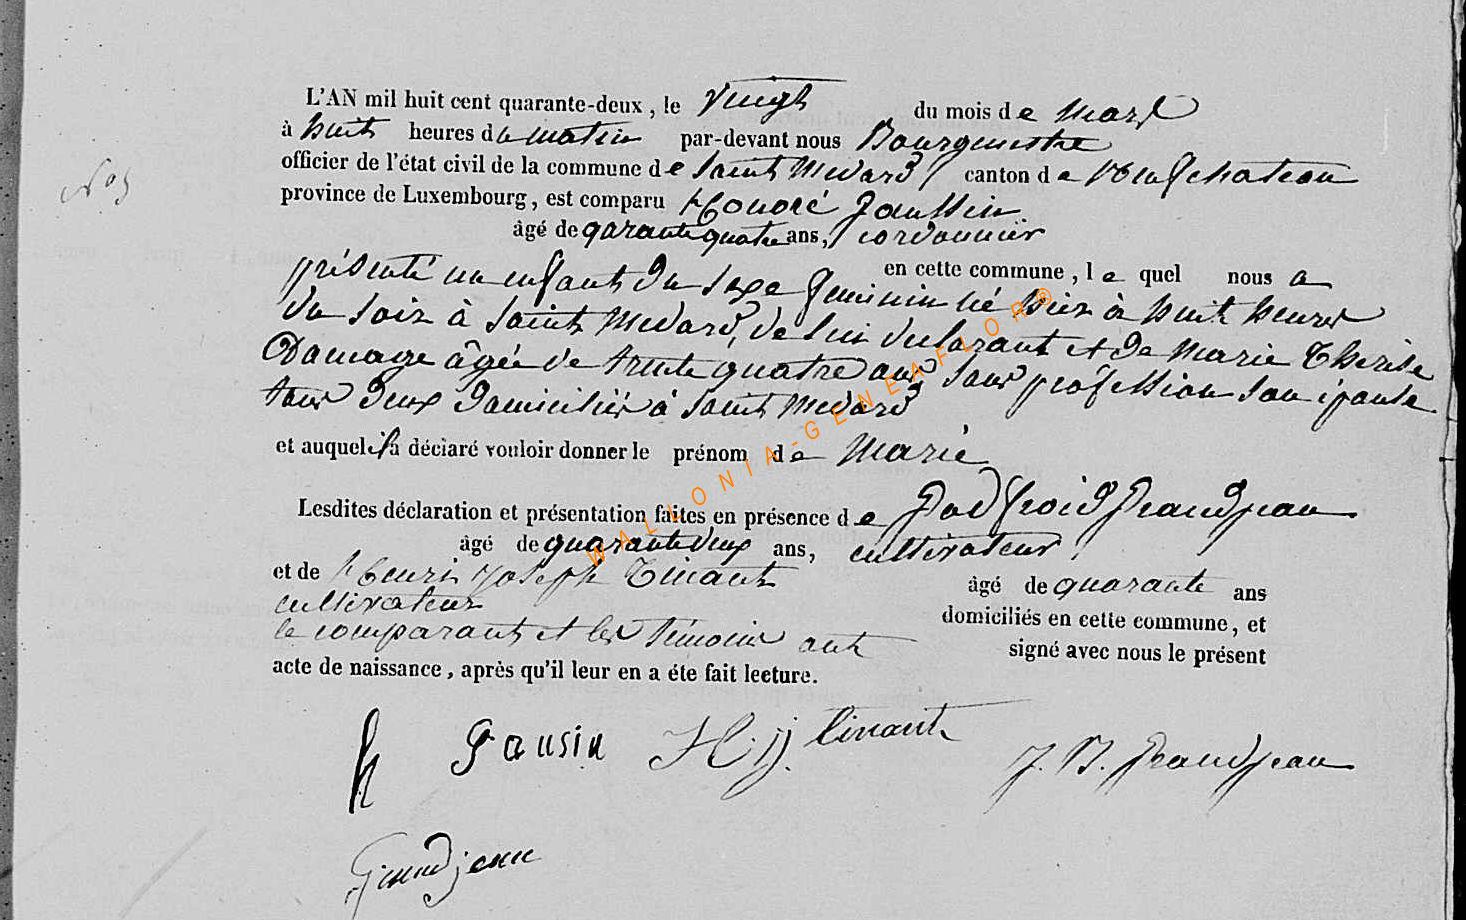 N° 5
L'AN mil huit cent quarante-deux, le vingt du mois de mars
à huit heures du matin par-devant nous Bourgmestre
officier de l'état civil de la commune de Saint Médard canton de Neufchateau
province de Luxembourg, est comparu Honoré Jaussin
âgé de quarante quatre ans, cordonnier
en cette commune, le quel nous a
présenté un enfant du sexe féminin né hier à huit heures
du soir à Saint Médard, de lui déclarant et de Marie Thérèse
Damage âgée de trente quatre ans, sans profession son épouse
tous deux domiciliés à Saint Médard
et auquel il a déclaré vouloir donner le prénom de Marie
Lesdites déclaration et présentation faites en présence de Godfroid Grandjean
âgé de quarante deux ans, cultivateur
et de Henri Joseph Tinant âgé de quarante ans
cultivateur domiciliés en cette commune, et
le comparant et les témoins ont signé avec nous le présent
acte de naissance, après qu'il leur en a éte fait lecture.
h gausin H. j. tinant J. B. Grandjean
Grandjean
WALLONIA-GENEAFLOR®